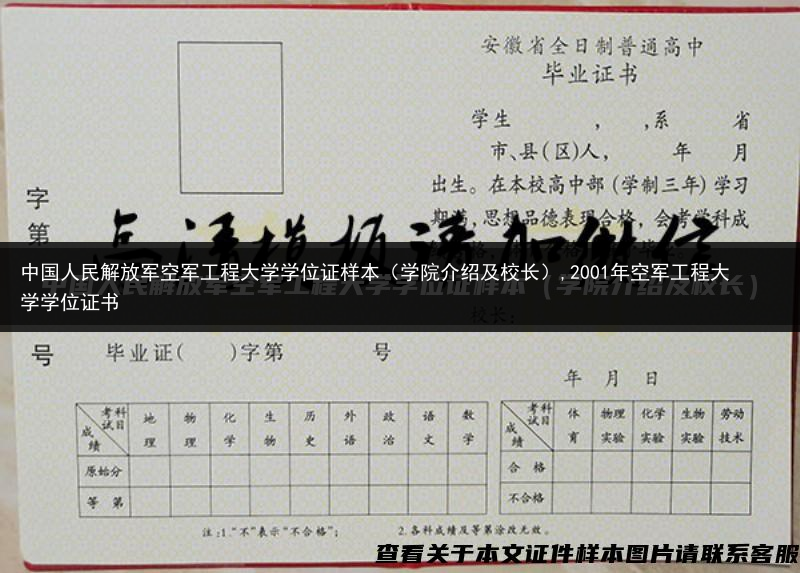 安徽省全日制普通高中
毕业证书
学生 , ,系 省
市、县(区)人, 年 月
出生。在本校高中部(学制三年)学习
期满,思想品德表现合格,会考学科成
字
第
号
中国人民解放军空军工程大学学位证样本（学院介绍及校长）,2001年空军工程大
学学位证书
中国人民解放军空军工程大学学位证样本（学院介绍及校长）
校长:
毕业证( )字第 号
年 月 日
考试科目 地理 物理 化学 生物 历史 外语 政治 语文 数学
成绩
原始分
等第
考试科目 体育 物理实验 化学实验 生物实验 劳动技术
成绩
合格
不合格
注:1."不"表示"不合格"; 2.各科成绩及等第涂改无效。
查看关于本文证件样本图片请联系客服